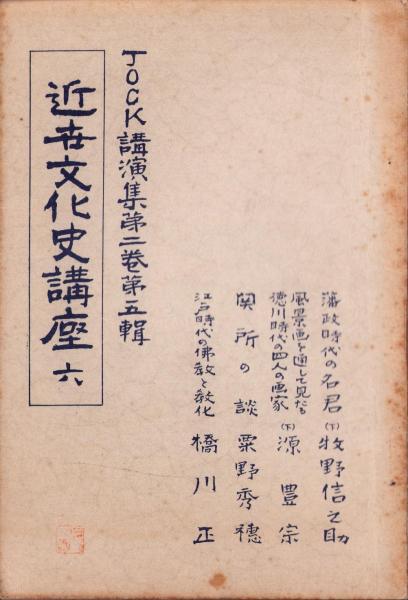 JOCK講演集第二巻第五輯
近世文化史講座 六
藩政時代の名君(下) 牧野信之助
風景画を通して見たる
徳川時代の四人の画家(下) 源豊宗
関所の談 粟野秀穂
江戸時代の佛教と教化 橋川正